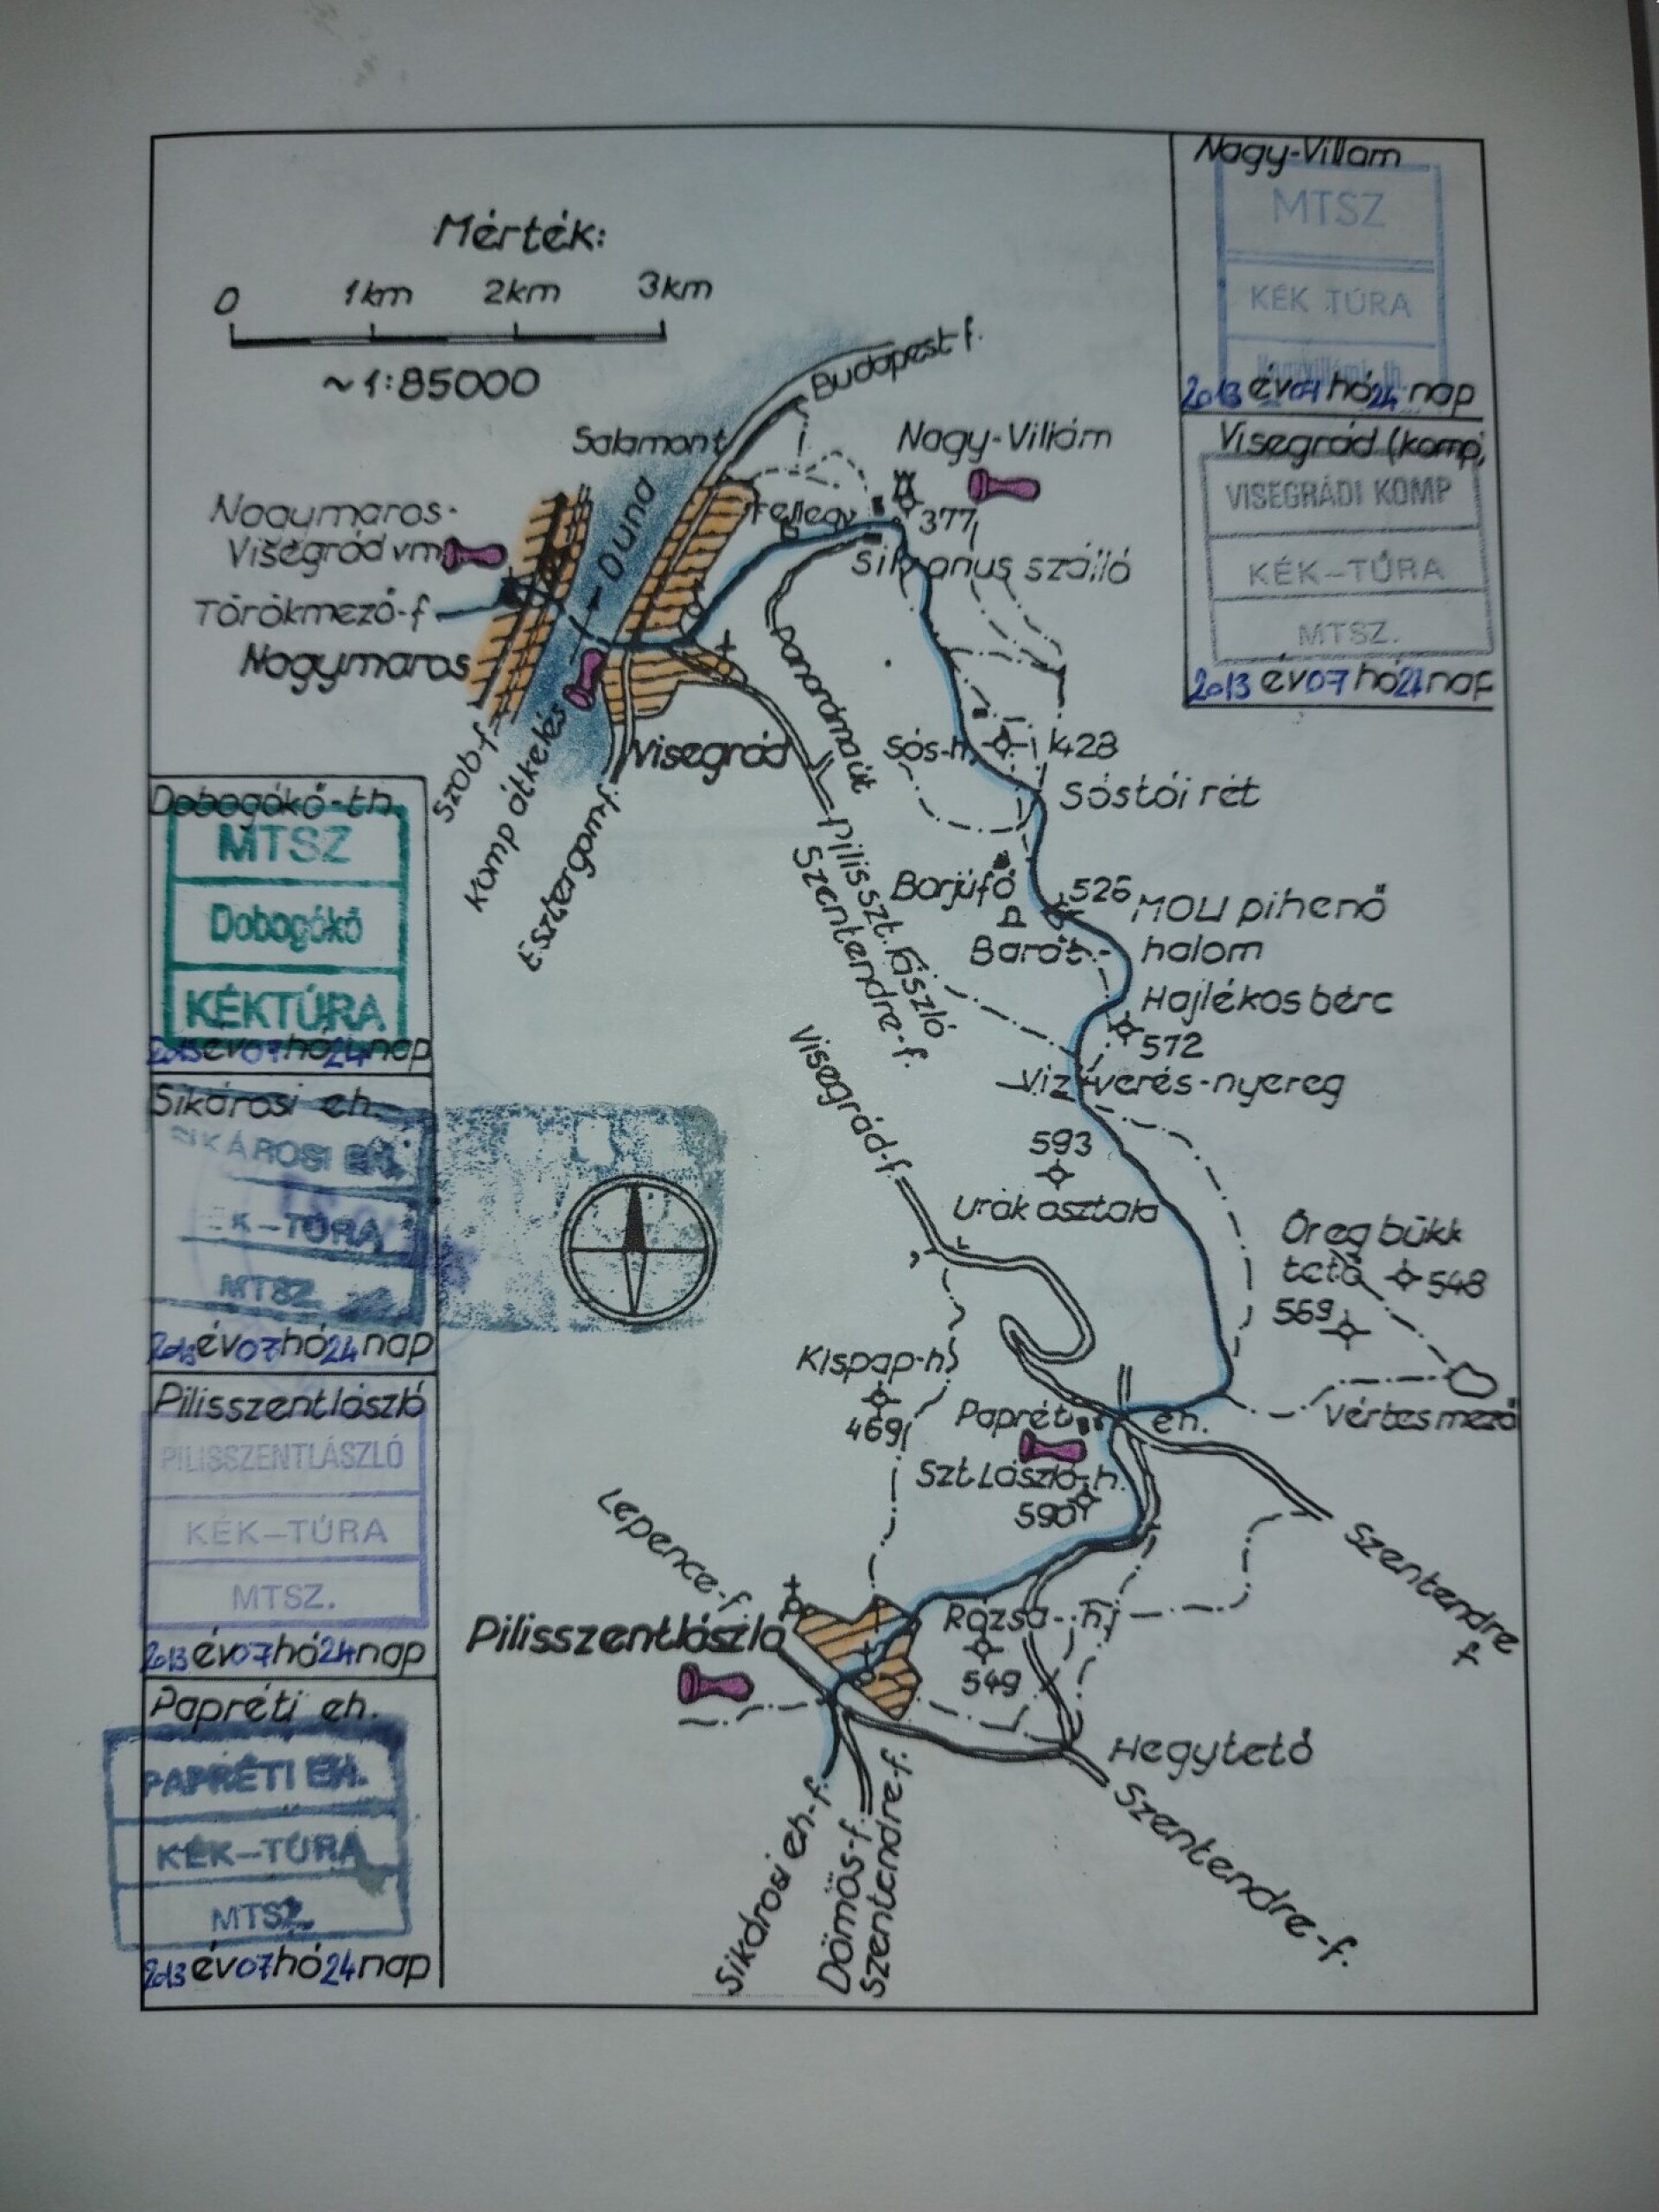 Mérték:
0 1km 2km 3km
~1:85000
Nagy-Villám
MTSZ
KÉK TÚRA
2013 év 07 hó 24 nap
Visegrád (komp)
VISEGRÁDI KOMP
KÉK-TÚRA
MTSZ.
2013 év 07 hó 27 nap
Budapest f.
Salamont
Nagy-Villám
Duna
Fellegv
377
Nagymaros-
Visegrád vm
Silvanus szálló
Törökmező-f
Nagymaros
panoráma út
Szob-f
Komp átkelés
Esztergom-f.
Visegrád
Sós-h.
428
Sóstói rét
Pilisszt.lászló
Szentendre-f.
Borjúfő
526
MOLI pihenő
Barát-halom
Hajlékos bérc
572
Vízverés-nyereg
Visegrád-f
593
Urak asztala
Öreg bükk
tető
548
569
Kispap-h
469
Paprét
eh.
Vértes mező
Szt.László-h.
590
Lepence-f.
Szentendre
f
Pilisszentlászló
Rózsa-h
549
Hegytető
Sikárosi eh-f.
Dömös-f.
Szentendre-f.
Szentendre-f.
Dobogókő-th.
MTSZ
Dobogókő
KÉKTÚRA
2013 év 07 hó 24 nap
Sikárosi eh.
SIKÁROSI EH.
K-TÚRA
MTSZ
2013 év 07 hó 24 nap
Pilisszentlászló
PILISSZENTLÁSZLÓ
KÉK-TÚRA
MTSZ.
2013 év 07 hó 24 nap
Papréti eh.
PAPRÉTI EH.
KÉK-TÚRA
MTSZ.
2013 év 07 hó 24 nap